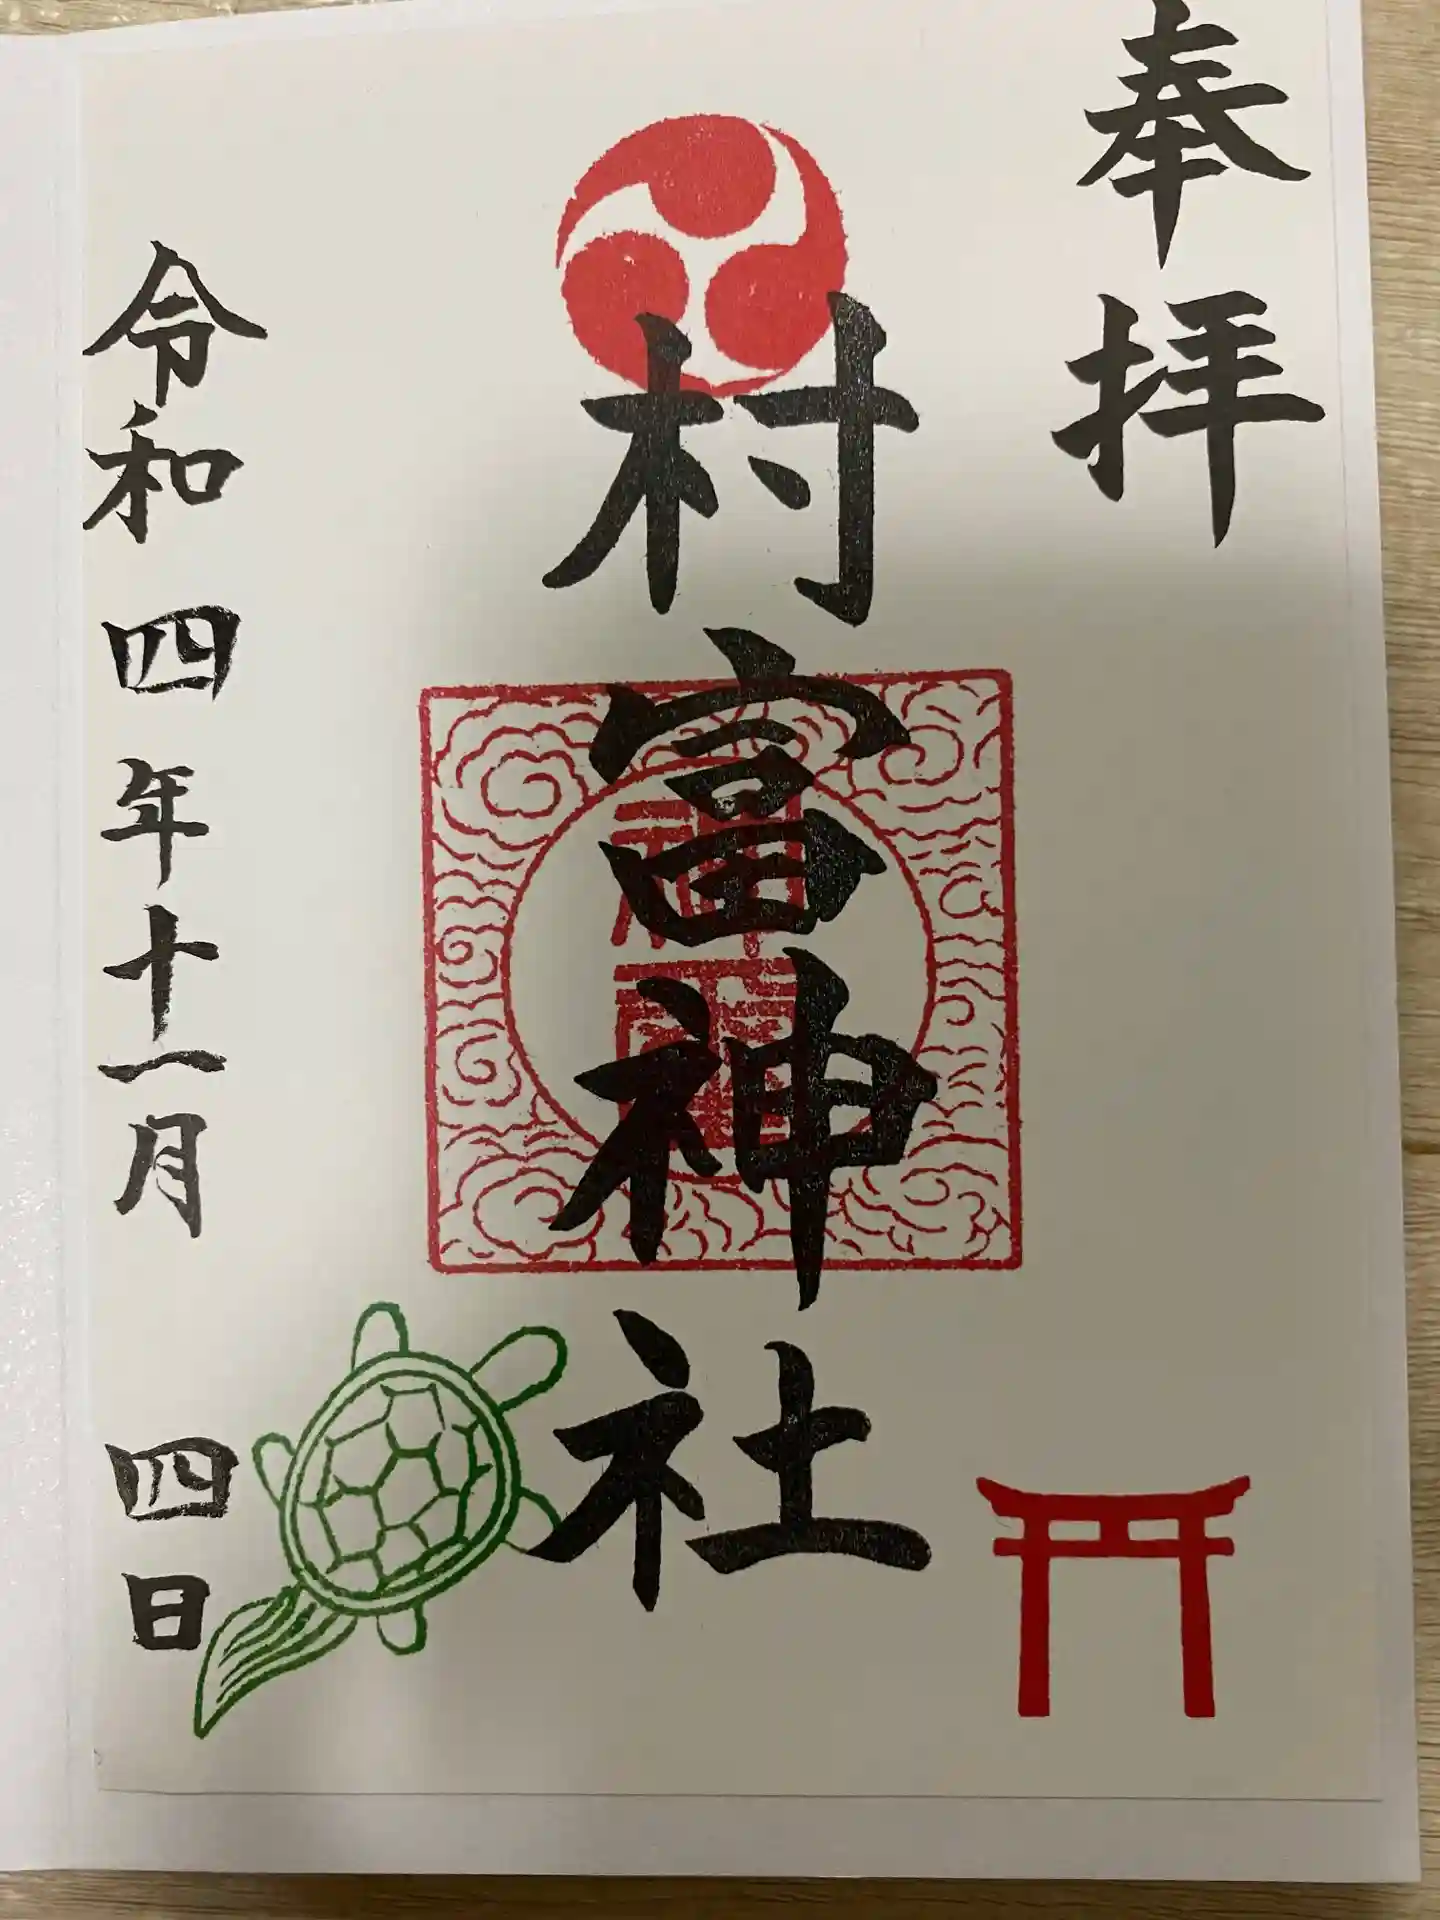 奉拝
村富神社
令和四年十一月四日